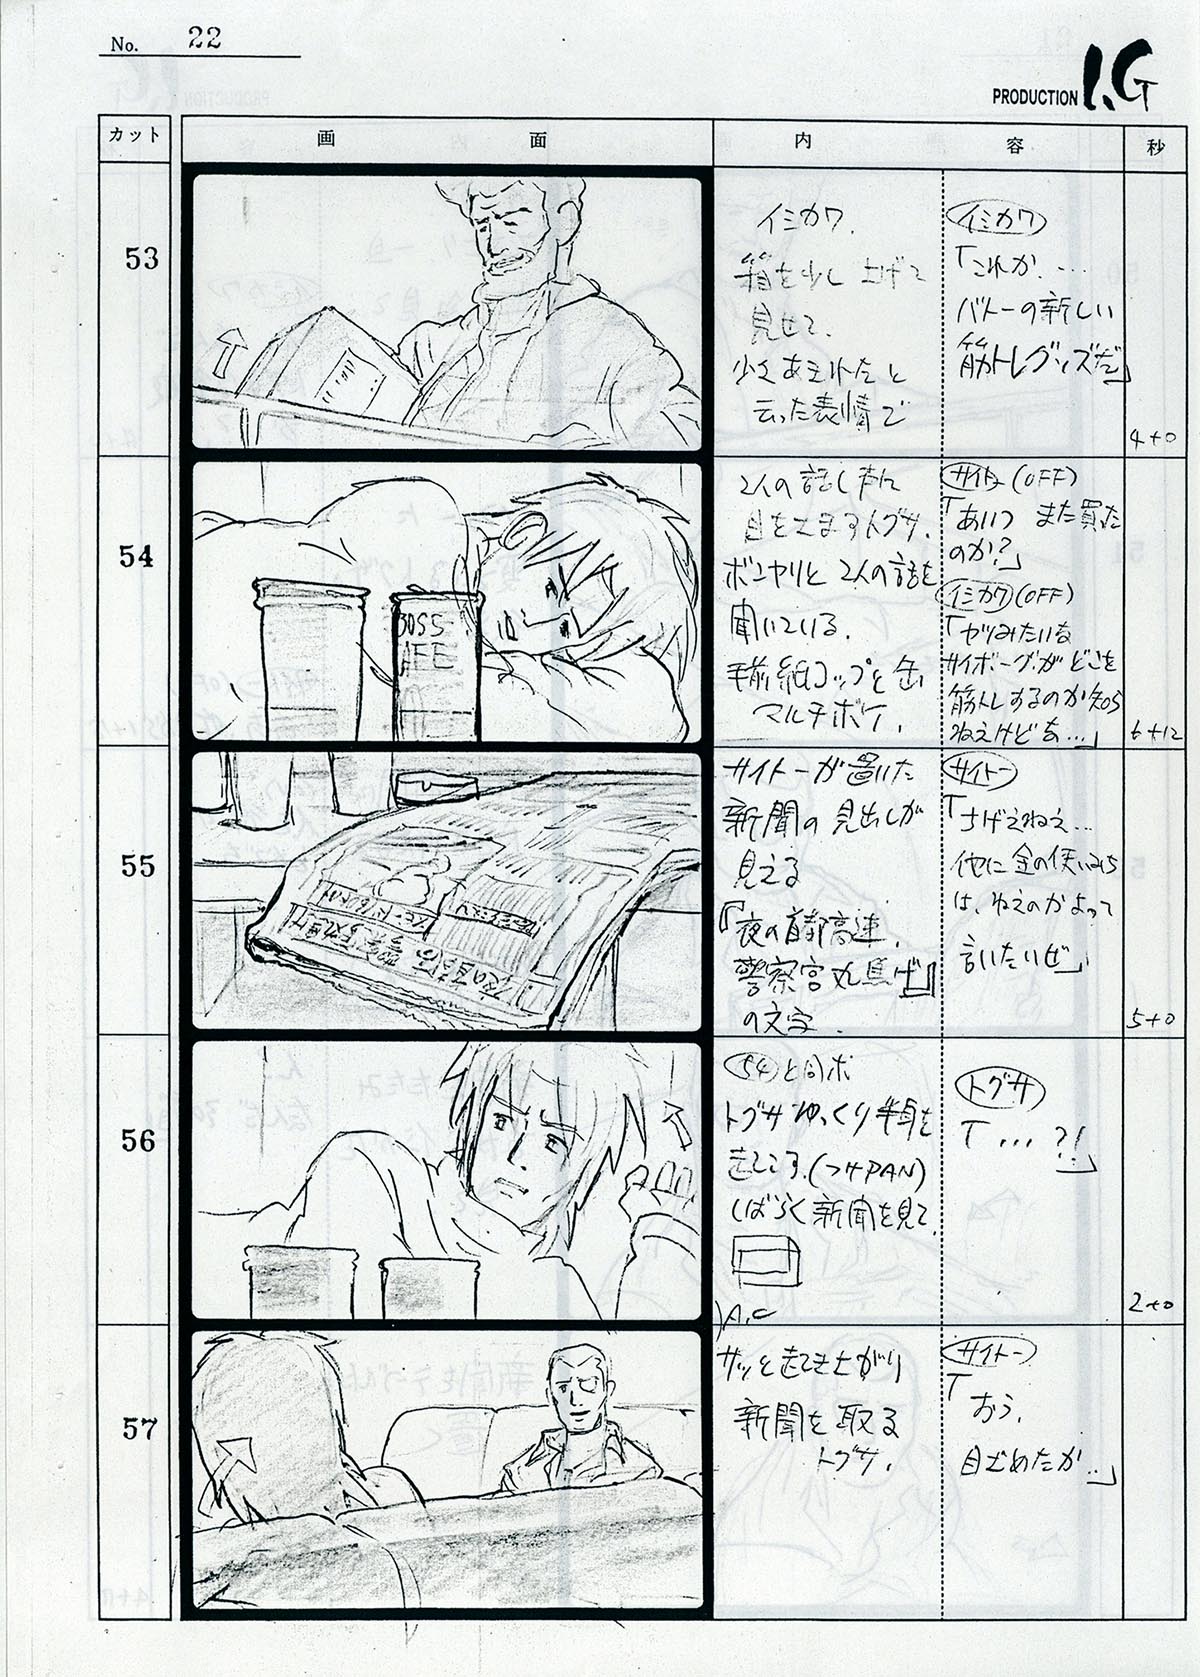 No. 22
PRODUCTION I.G
カット
画面
内容
秒
53
イシカワ.
箱を少し上げて
見せて.
少々あきれたと
云った表情で
イシカワ
「これが、…
バトーの新しい
筋トレグッズだ」
4+0
54
2人の話し声に
目をさますトグサ.
ボンヤリと2人の話を
聞いている.
手前紙コップと缶
マルチボケ.
サイトー(OFF)
「あいつ また買た
のか?」
イシカワ(OFF)
「ヤツみたいな
サイボーグがどこを
筋トレするのか知ら
ねえけどな…」
6+12
BOSS
55
サイトーが置いた
新聞の見出しが
見える
『夜の首都高速.
警察官丸焦げ』
の文字.
サイトー
「さげえねえ…
他に金の使いみち
は、ねえのかよって
言いたいぜ」
5+0
56
54と同ポ
トグサゆっくり半身を
起こす.(つけPAN)
しばらく新聞を見て.
トグサ
「…?!」
2+0
A.C
57
サッと起き上がり
新聞を取る
トグサ.
サイトー
「おう.
目ざめたか…」